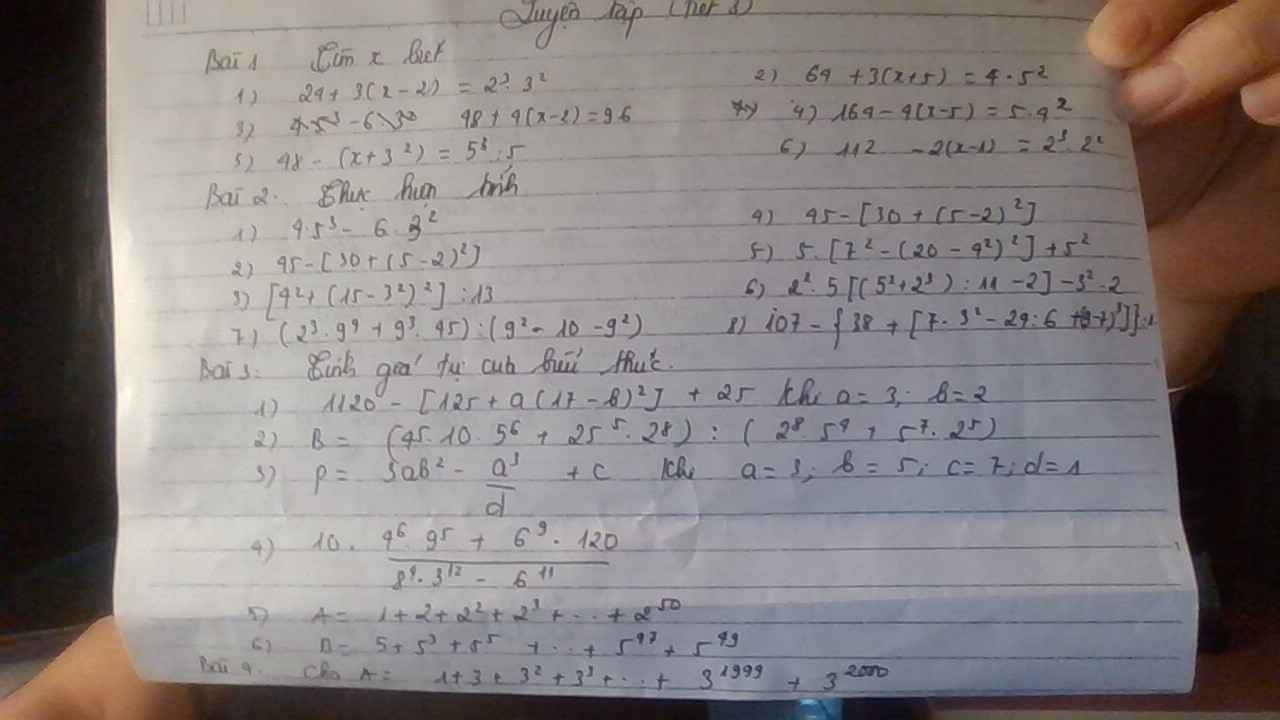 Luyện tập (tiết 3)
Bài 1 Tìm x biết
1) 24 + 3(x - 2) = 2³. 3² 2) 64 + 3(x+5) = 4 . 5²
3) 48 + 4(x-2) = 96 4) 164 - 4(x-5) = 5.4²
5) 48 - (x+3²) = 5³ : 5 6) 112 - 2(x-1) = 2³. 2²
Bài 2. Thực hiện tính
1) 4.5³ - 6. 3² 4) 45 - [30 + (5-2)²]
2) 45 - [30 + (5-2)²] 5) 5. [7² - (20 - 4²)²] + 5²
3) [4² + (15 - 3²)²] : 13 6) 2². 5 [(5²+2³) : 11 - 2] - 3². 2
7) (2³. 9⁴ + 9³. 45) : (9². 10 - 9²) 8) 107 - {38 + [7. 3² - 24 : 6
Bài 3: Tính giá trị của biểu thức.
1) 1120 - [125 + a(17 - b)²] + 25 khi a = 3; b = 2
2) B = (45. 10. 5⁶ + 25⁵. 28) : (2⁸. 5⁴ + 5⁷. 2⁵)
3) P = 3ab² - a³/d + c khi a = 3; b = 5; c = 7; d = 1
4) 10. (4⁶. 9⁵ + 6⁹. 120)/(8⁴. 3¹² - 6¹¹)
5) A = 1 + 2 + 2² + 2³ + ... + 2⁵⁰
6) B = 5 + 5³ + 5⁵ + ... + 5⁹⁷ + 5⁹⁹
Bài 4. Cho A = 1 + 3 + 3² + 3³ + ... + 3¹⁹⁹⁹ + 3²⁰⁰⁰